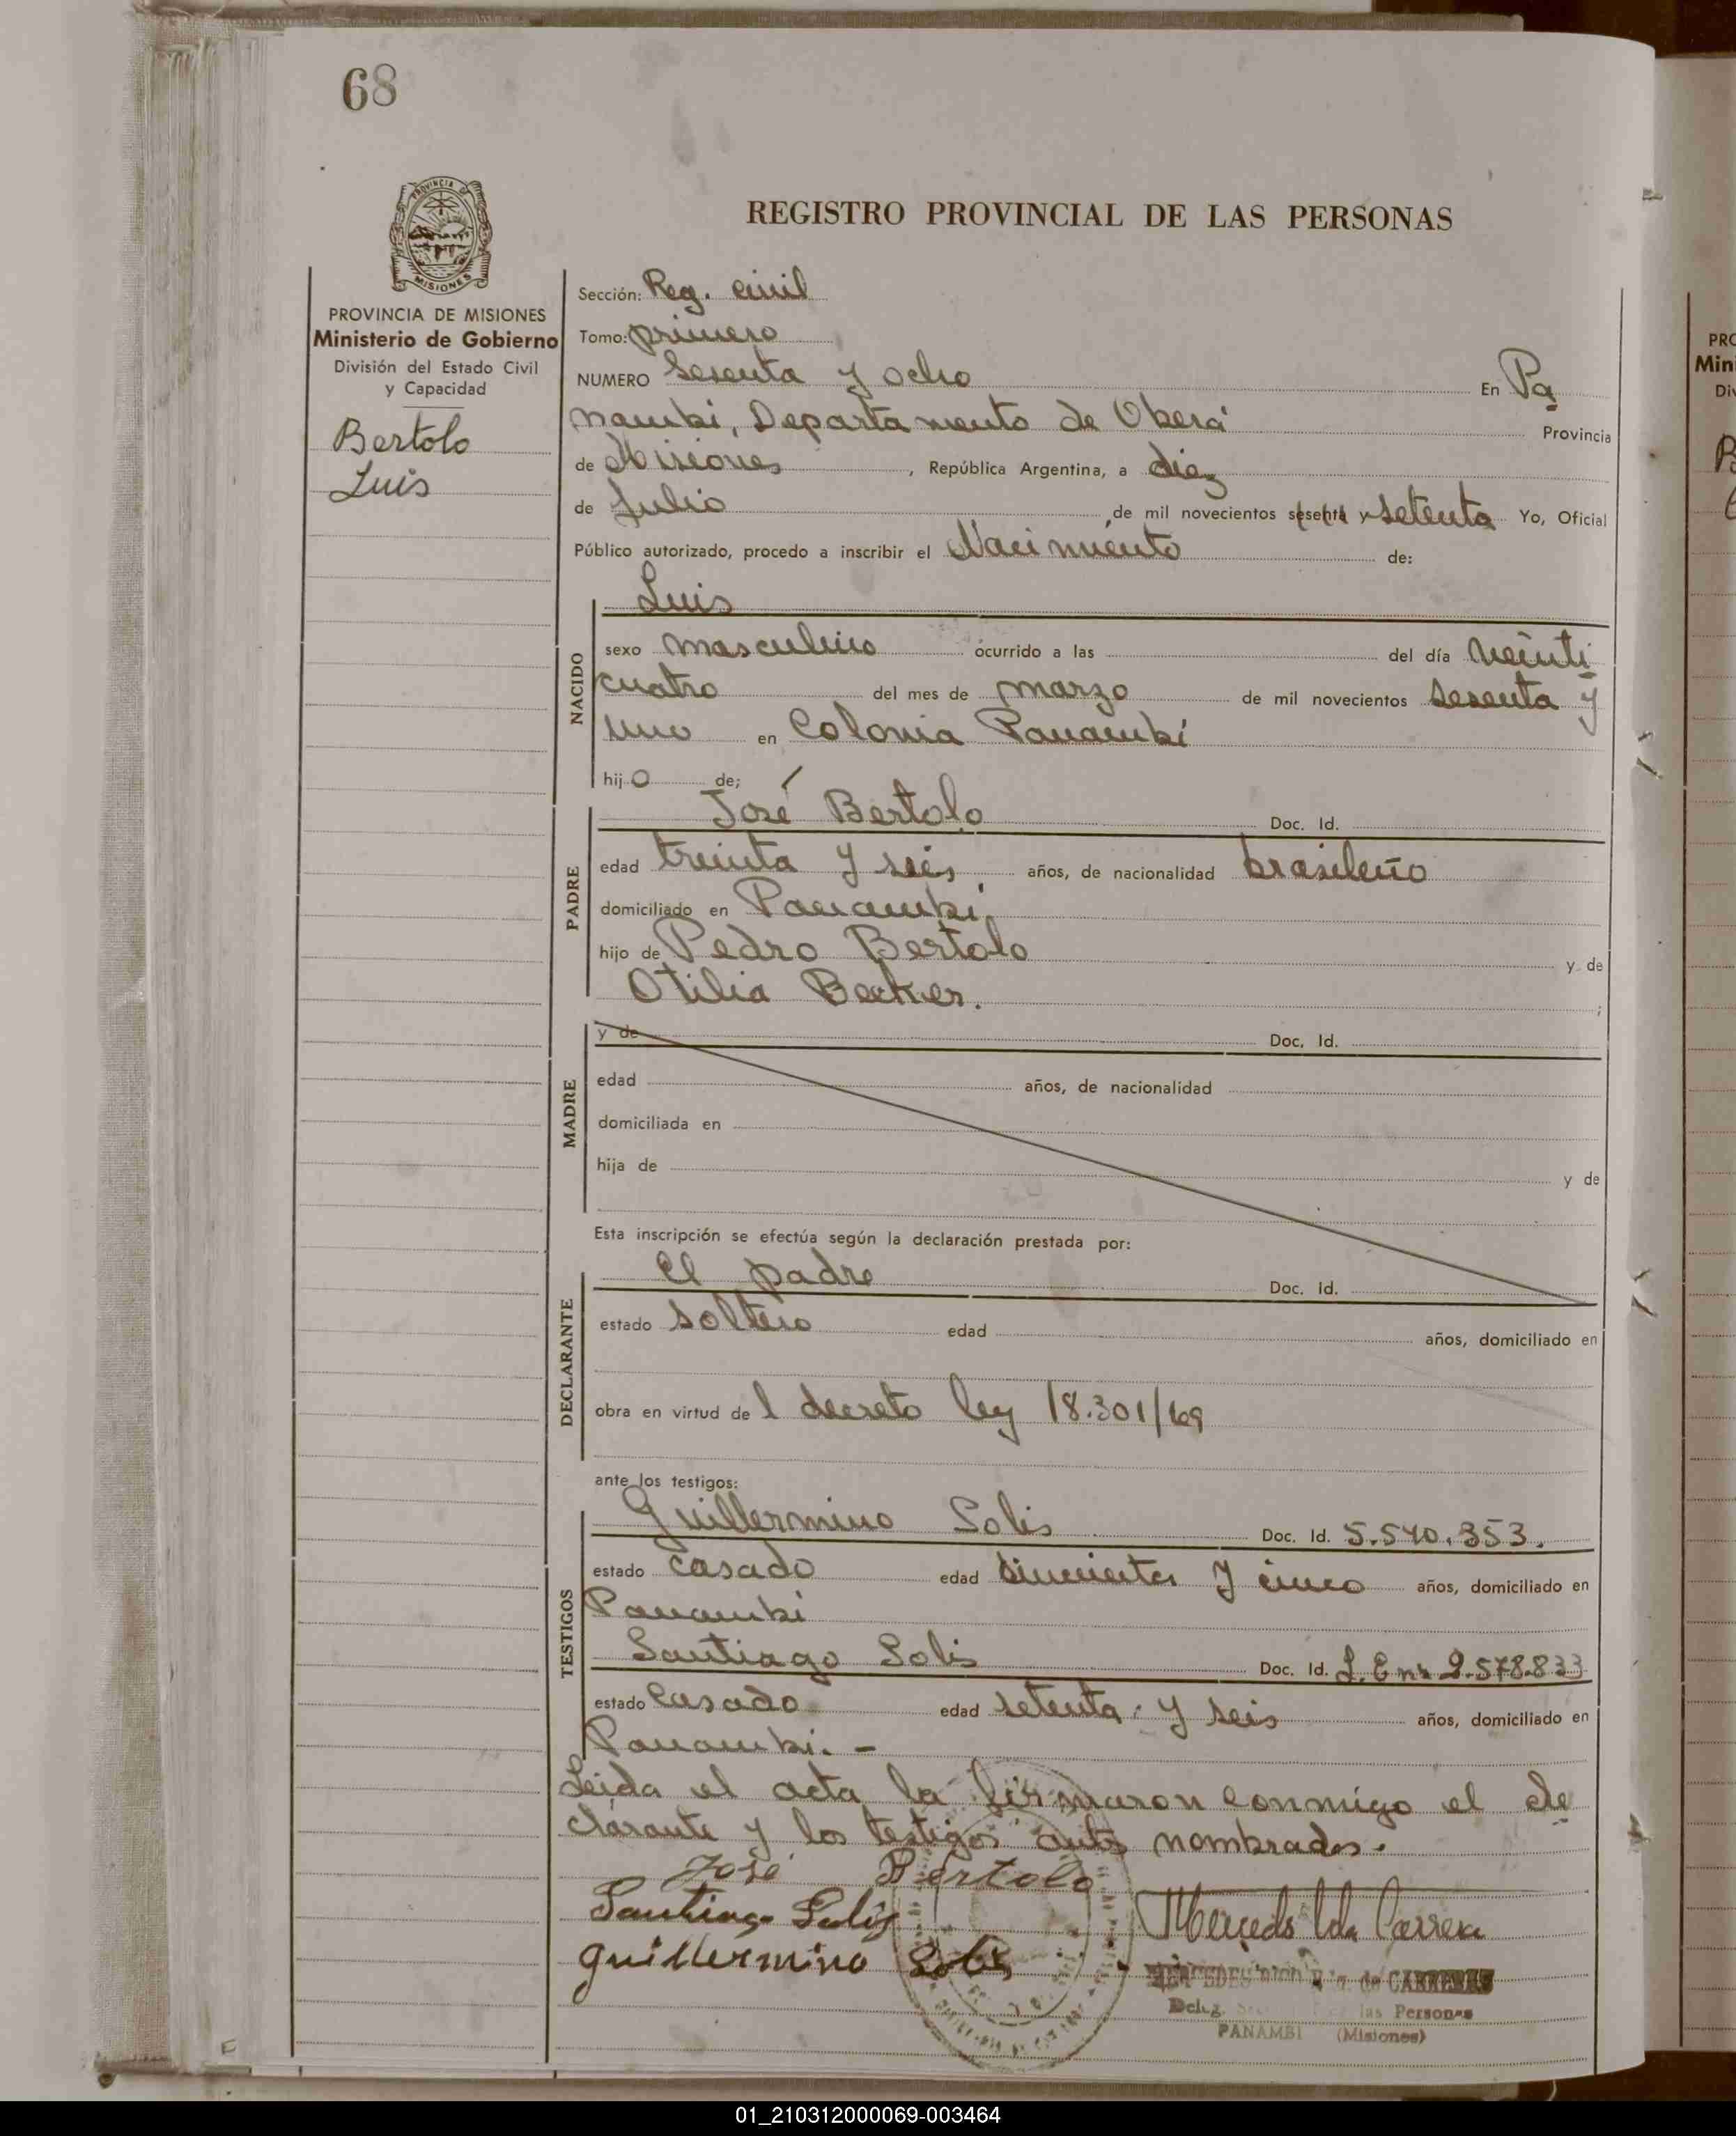 68
PROVINCIA DE
MISIONES
REGISTRO PROVINCIAL DE LAS PERSONAS
PROVINCIA DE MISIONES
Ministerio de Gobierno
División del Estado Civil
y Capacidad
Bertolo
Luis
Sección: Reg. civil
Tomo: primero
NUMERO Sesenta y ocho En Pa
nambí, Departamento de Oberá Provincia
de Misiones, República Argentina, a diez
de Julio de mil novecientos sesenta y setenta Yo, Oficial
Público autorizado, procedo a inscribir el Nacimiento de:
NACIDO
Luis
sexo masculino ocurrido a las del día veinti
cuatro del mes de marzo de mil novecientos sesenta y
uno en Colonia Panambí
hijo de;
PADRE
José Bertolo Doc. Id.
edad treinta y seis años, de nacionalidad brasileño
domiciliado en Panambí,
hijo de Pedro Bertolo y de
Otilia Becker. ;
MADRE
y de Doc. Id.
edad años, de nacionalidad
domiciliada en
hija de y de
Esta inscripción se efectúa según la declaración prestada por:
DECLARANTE
El padre Doc. Id.
estado soltero edad años, domiciliado en
obra en virtud del decreto ley 18.301/69
ante los testigos:
TESTIGOS
Guillermino Solis Doc. Id. 5.540.353.
estado casado edad cincuenta y cinco años, domiciliado en
Panambí
Santiago Solis Doc. Id. L. E nº 2.578.833
estado casado edad setenta y seis años, domiciliado en
Panambí. -
Leida el acta la firmaron conmigo el de
clarante y los testigos antes nombrados.
José Bertolo
Santiago Solis
Guillermino Solis
de CARRERAS
las Personas
PANAMBI (Misiones)
PRO
Min
Div
01_210312000069-003464